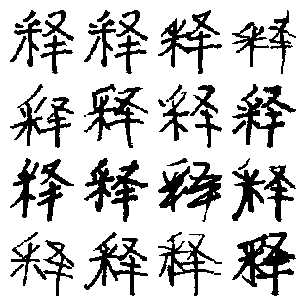 释释释释
释释释释
释释释释
释释释释